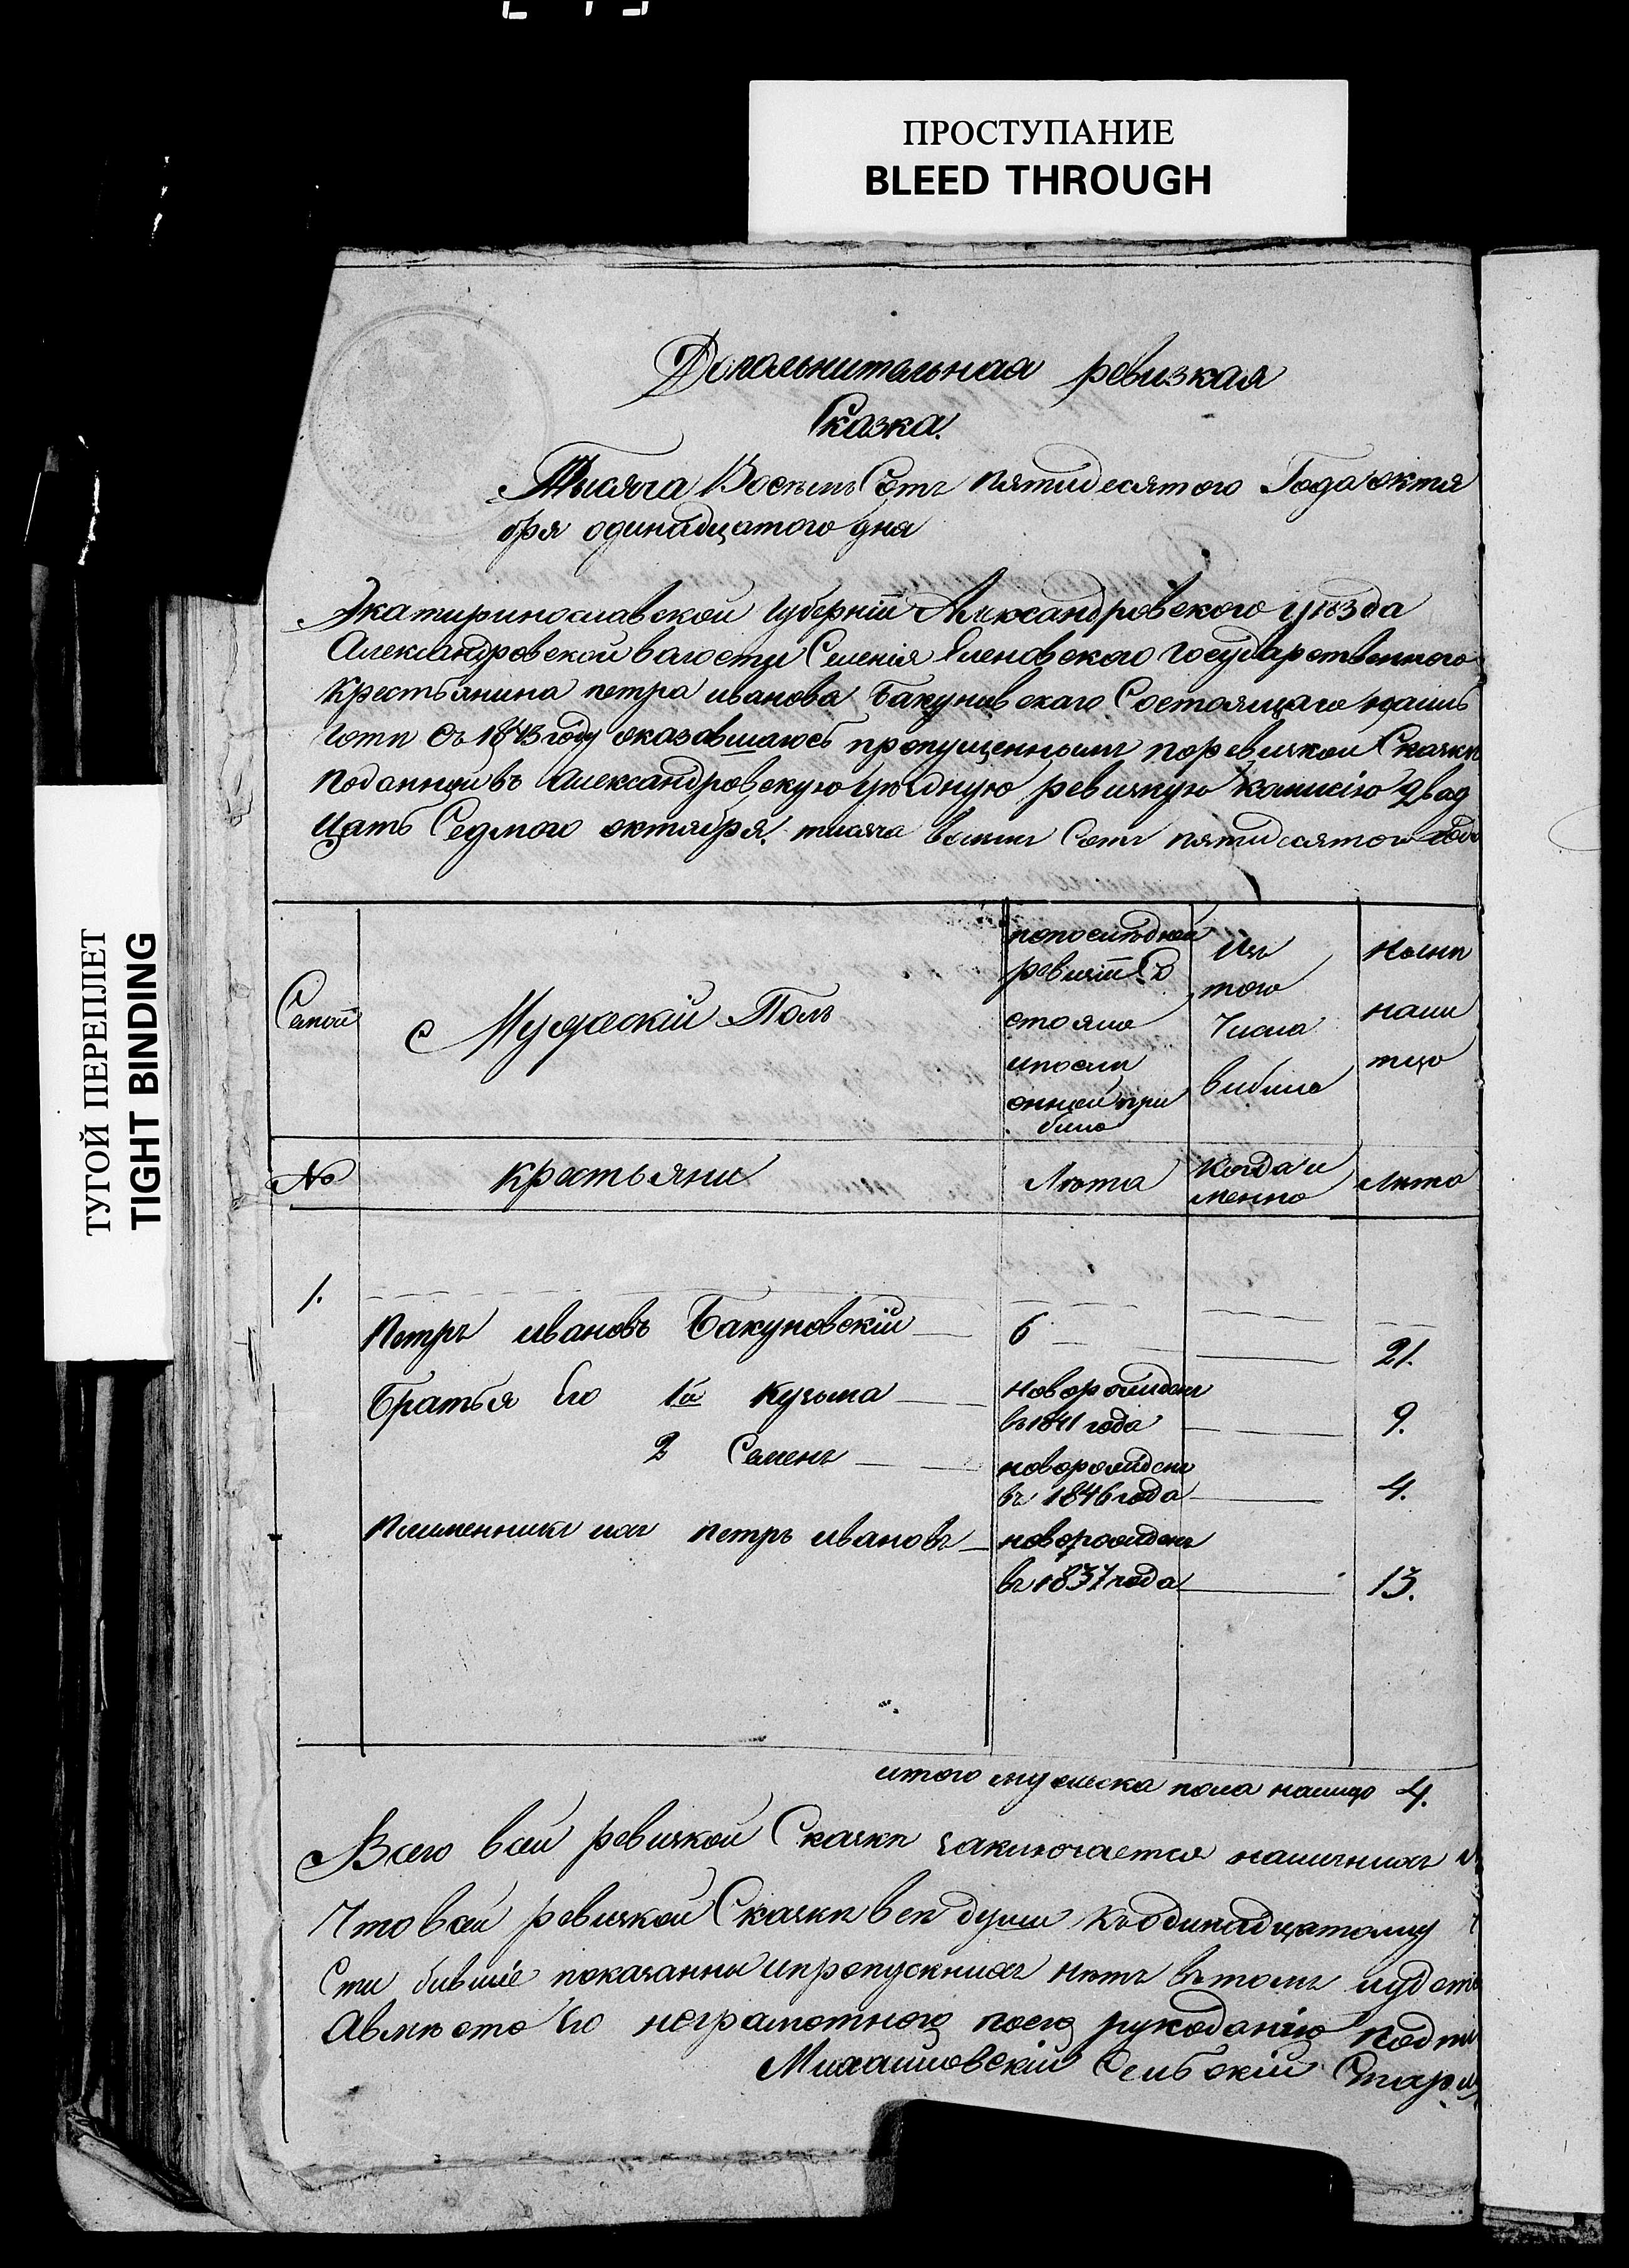 ПРОСТУПАНИЕ
BLEED THROUGH
ТУГОЙ ПЕРЕПЛЕТ
TIGHT BINDING
Дополнительная ревизкая
Сказка.
Тысяча Восемъ Сотъ пятидесятого Года октя
бря одинадцатого дня
Экатиринославской губернїи Александровского уѣзда
Александровской волости Селенія Еленовского государственного
Крестьянина петра иванова Бакуновскаго Состоящаго
съ 1843 году оказавшагось пропущеннымъ по ревизкой Сказкѣ
поданной въ Александровскую уѣздную ревизкую Комисію двад
цать Седмого октября. тысяча восемъ Сотъ пятидесятого года
Семьи
Мужескій Полъ
по последней
ревизїи Со
стояло
и после
оной при
было
Изъ
того
Числа
выбыло
Нынѣ
нали
тцо
№
крестьяни
Лѣта
Когда и
менно
Лѣта
1.
Петръ ивановъ Бакуновскій
6
21.
Братья Его 1й Кузьма
новорожденъ
въ 1841 года
9.
2 Семенъ
новорожденъ
въ 1846 года
4.
Племенникъ ихъ петръ ивановъ
новорожденъ
въ 1837 года
13.
итого мужеска пола налицо 4.
Всего всей ревизкой Сказкѣ заключается наличнихъ
Что всей ревизкой Сказкѣ всѣ души къ одинадцатому
Сти бившіе показанны и пропускнихъ нѣтъ въ томъ
А вмѣсто Его неграмотного по его рукоданію подпи
Михайловскій Сельскій Стар